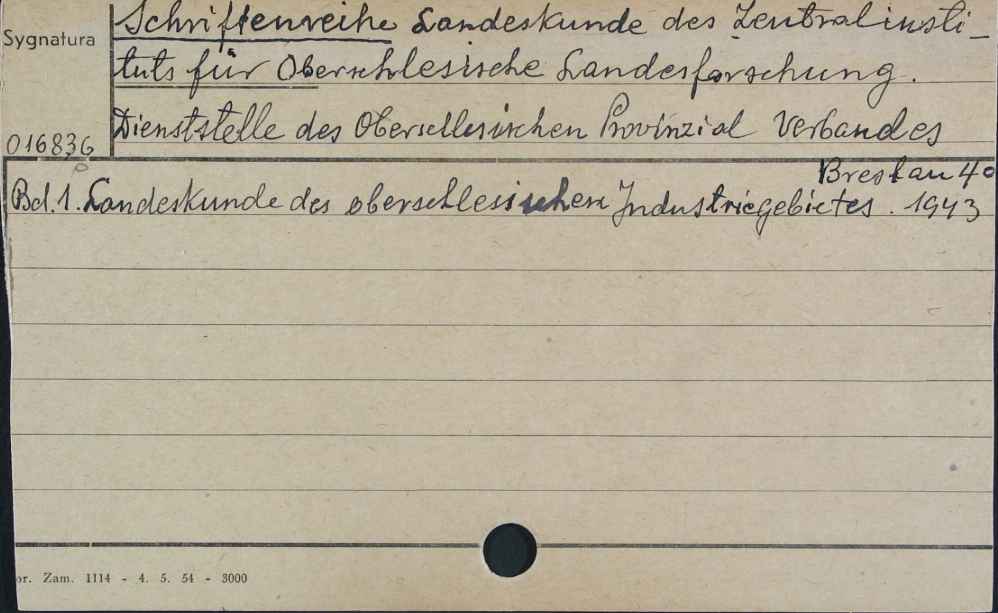 Sygnatura
Schriftenreihe Landeskunde des Zentralinsti-
tuts für Oberschlesische Landesforschung.
Dienststelle des Oberschlesischen Provinzial Verbandes
016836
Breslau 4°
Bd. 1. Landeskunde des oberschlesischen Industriegebietes. 1943
or. Zam. 1114 - 4. 5. 54 - 3000